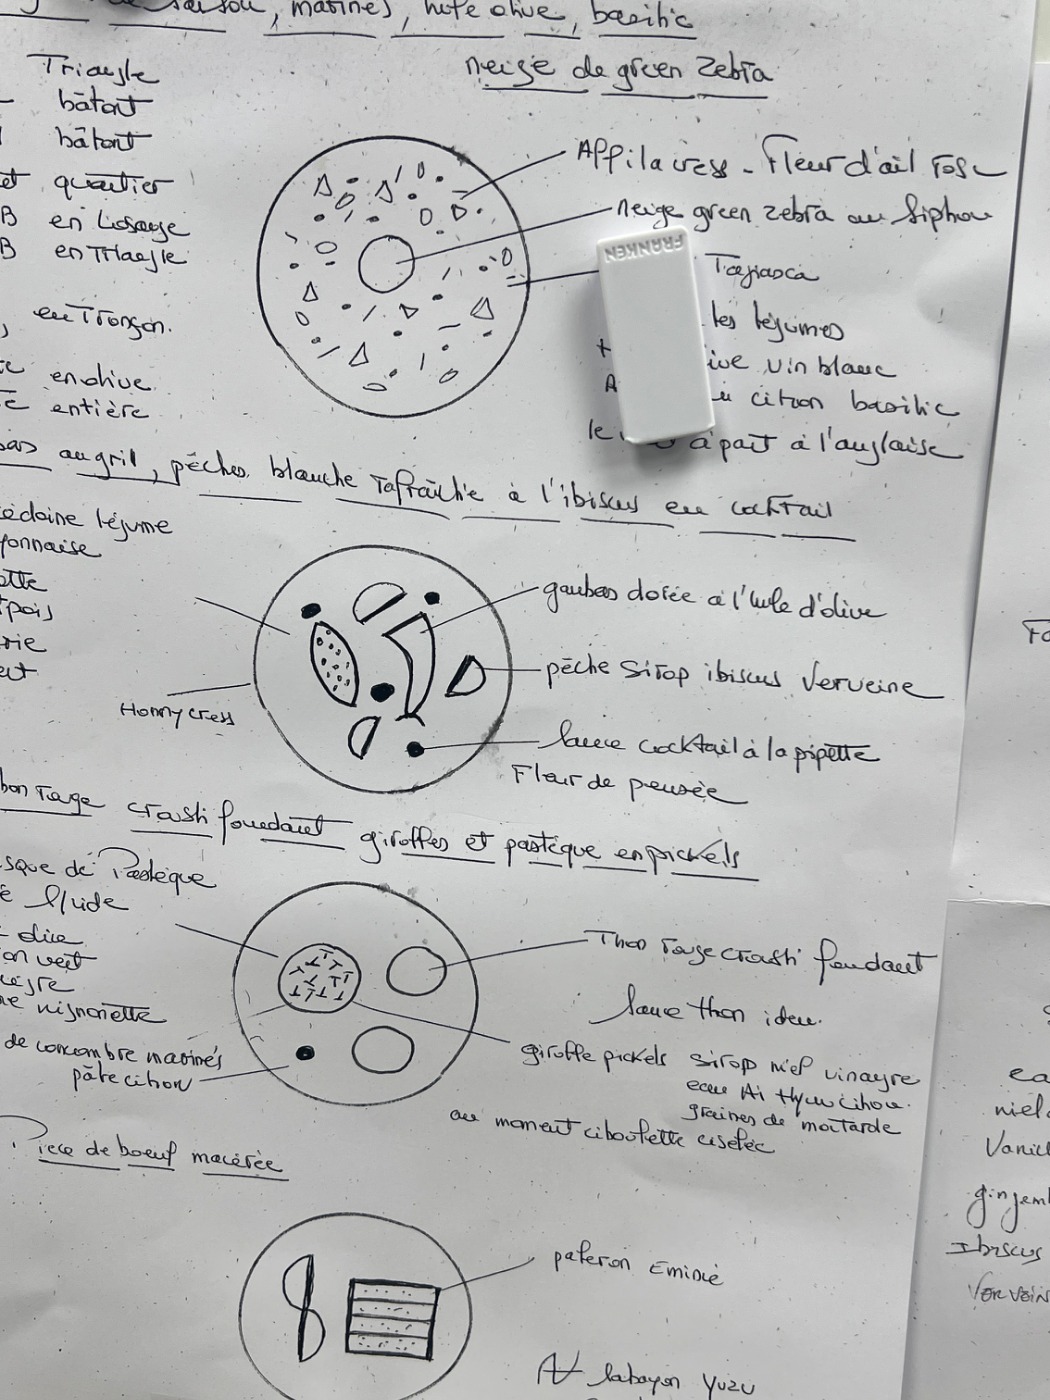 saison, marinés, note olive, basilic
neige de green zebra
Triangle
bâtont
bâtont
quartier
B en Losange
B en Triangle
en Tronçon.
en olive
entière
Affila cress - Fleur d'ail rose
neige green zebra au Siphon
FRANKEN
Tagiasca
les légumes
ive vin blanc
citron basilic
à part à l'anglaise
au gril, pêches blanche rafraîchie à l'ibiscus en cocktail
édoine légume
yonnaise
ette
pois
rie
Honny cress
gambas dorée à l'huile d'olive
pêche Sirop ibiscus Verveine
Sauce cocktail à la pipette
Fleur de pensée
hon rouge crousti fondant girolles et pastèque en pickels
sque de Pastèque
fluide
on vert
mignonette
de concombre marinés
pâte citron
Thon rouge crousti fondant
Sauce thon idem.
girolle pickels Sirop miel vinaigre
eau Ai thym citron.
graines de moutarde
au moment ciboulette ciselée
Piece de boeuf macérée
paleron Emincé
labayon yuzu
miel
Vanill
gingem
Ibiscus
Verveine